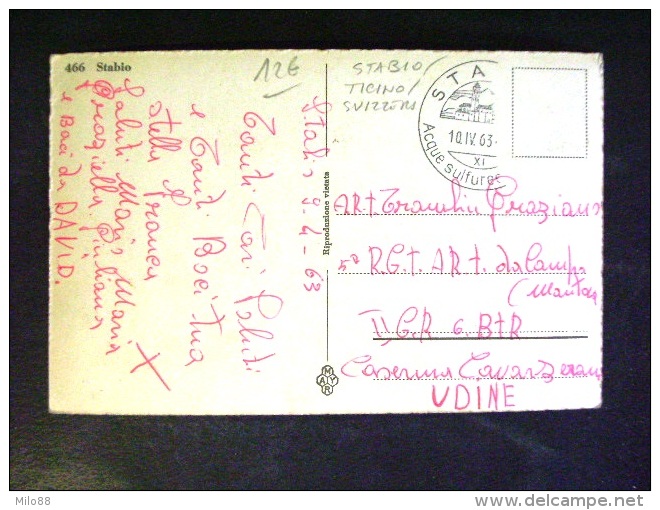 466 Stabio
12€
STABIO/
TICINO/
SVIZZERA
STA
10.IV.63-
XI
Acque sulfuros
Stabio 9-4-63
Tanti Cari Saluti
e Tanti Baci Tua
Stella Franca
Saluti Mario Maria
Graziella Giuliana
e Baci da DAVID.
Riproduzione vietata
MAYR
ART Graziano
5° RGt. ARt. da Campa
(Mantova
II GR 6. BtR
Caserma Cavarzerani
UDINE
Milo88
delcampe.net